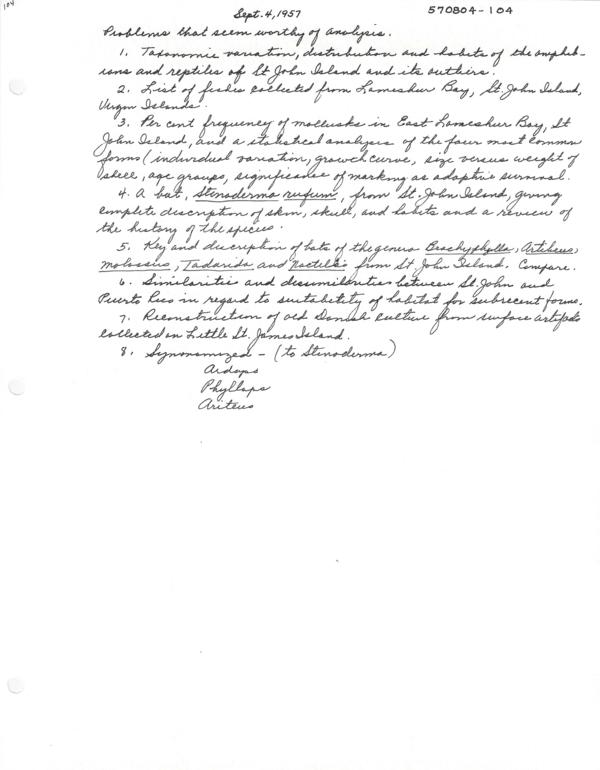 104
Sept. 4, 1957
570804-104
Problems that seem worthy of analysis.
1. Taxonomic variation, distribution and habits of the amphib-
ians and reptiles of St John Island and its outliers.
2. List of fishes collected from Lameshur Bay, St. John Island,
Virgin Islands.
3. Per cent frequency of mollusks in East Lameshur Bay, St
John Island, and a statistical analysis of the four most common
forms (individual variation, growth curve, size versus weight of
shell, age groups, significance of marking as adaptive survival.
4. A bat, Stenoderma rufum, from St. John Island, giving
complete discription of skin, skull, and habits and a review of
the history of the species.
5. Key and discription of bats of the genera Brachyphylla, Artibeus,
Molossus, Tadarida and Noctilio from St John Island. Compare.
6. Similarities and dissimilarities between St. John and
Puerto Rico in regard to suitability of habitat for subrecent forms.
7. Reconstruction of old Danish culture from surface artifacts
collected on Little St. James Island.
8. Synonomized - (to Stenoderma)
Ardops
Phyllops
Ariteus